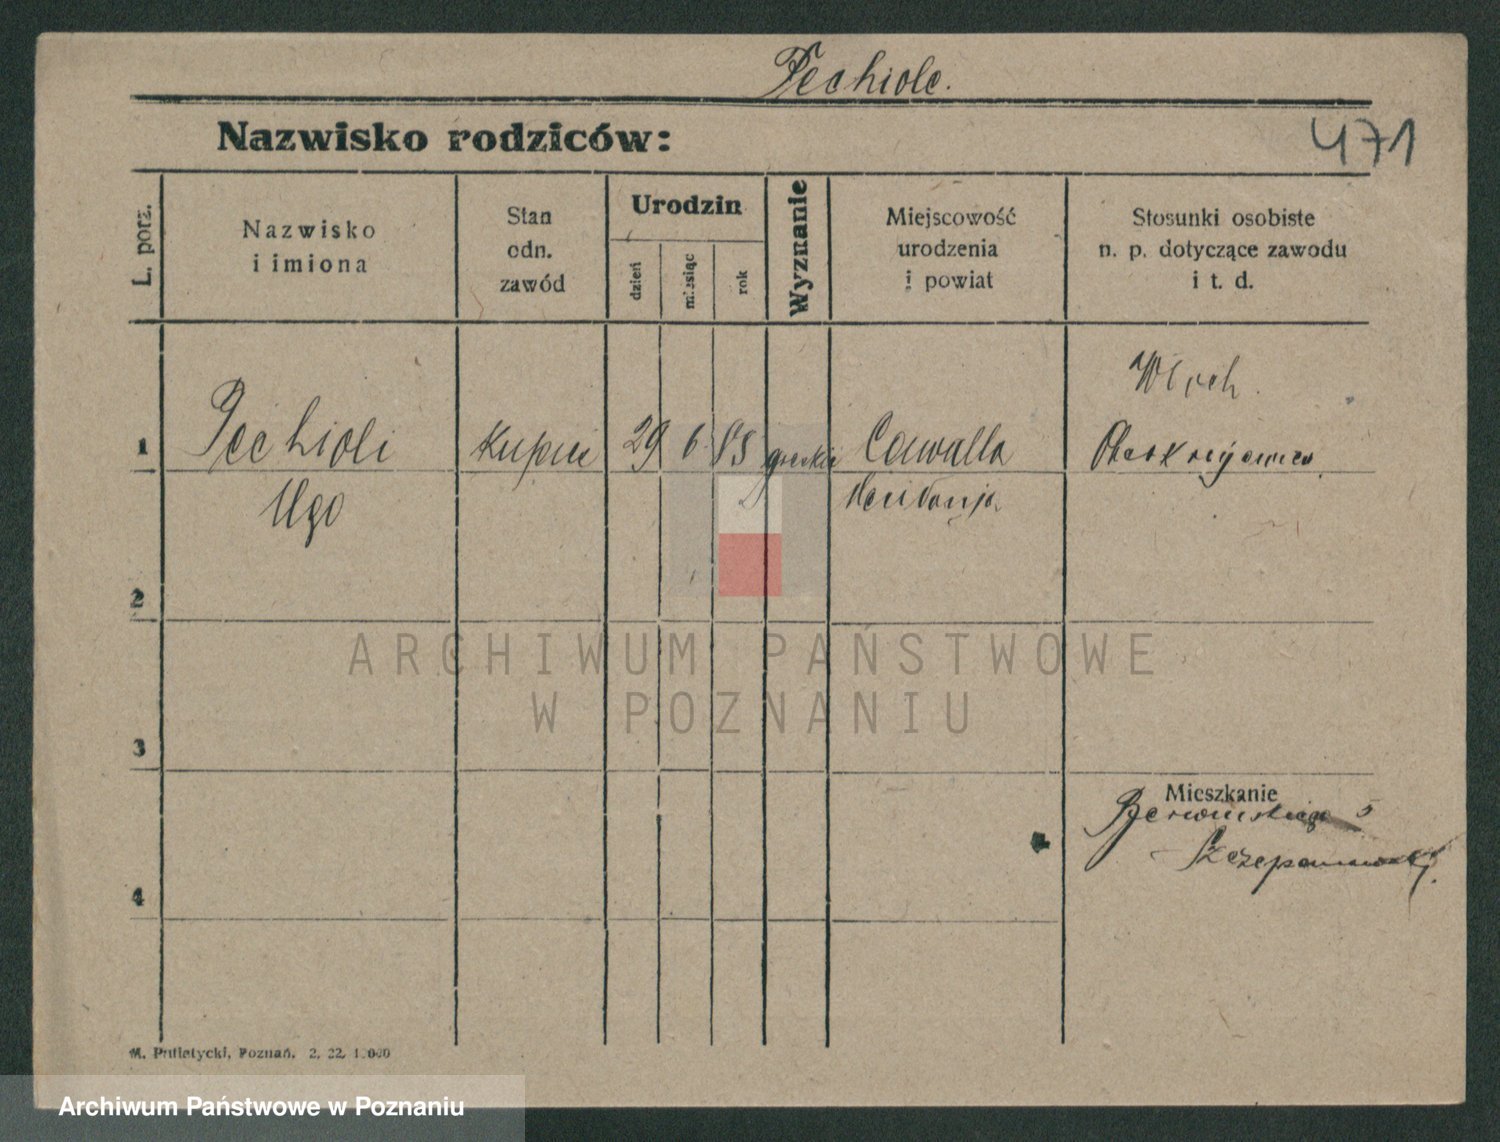 Pechiole.
Nazwisko rodziców:
471
L. porz.
Nazwisko
i imiona
Stan
odn.
zawód
Urodzin
dzień
miesiąc
rok
Wyznanie
Miejscowość
urodzenia
i powiat
Stosunki osobiste
n. p. dotyczące zawodu
i t. d.
Włoch.
1
Pechioli
kupiec
29
6.
85
grecka
Cawalla
Ugo
2
3
Mieszkanie
5
4
M. Putiatycki, Poznań. 2. 22. 10000
ARCHIWUM PAŃSTWOWE
W POZNANIU
Archiwum Państwowe w Poznaniu